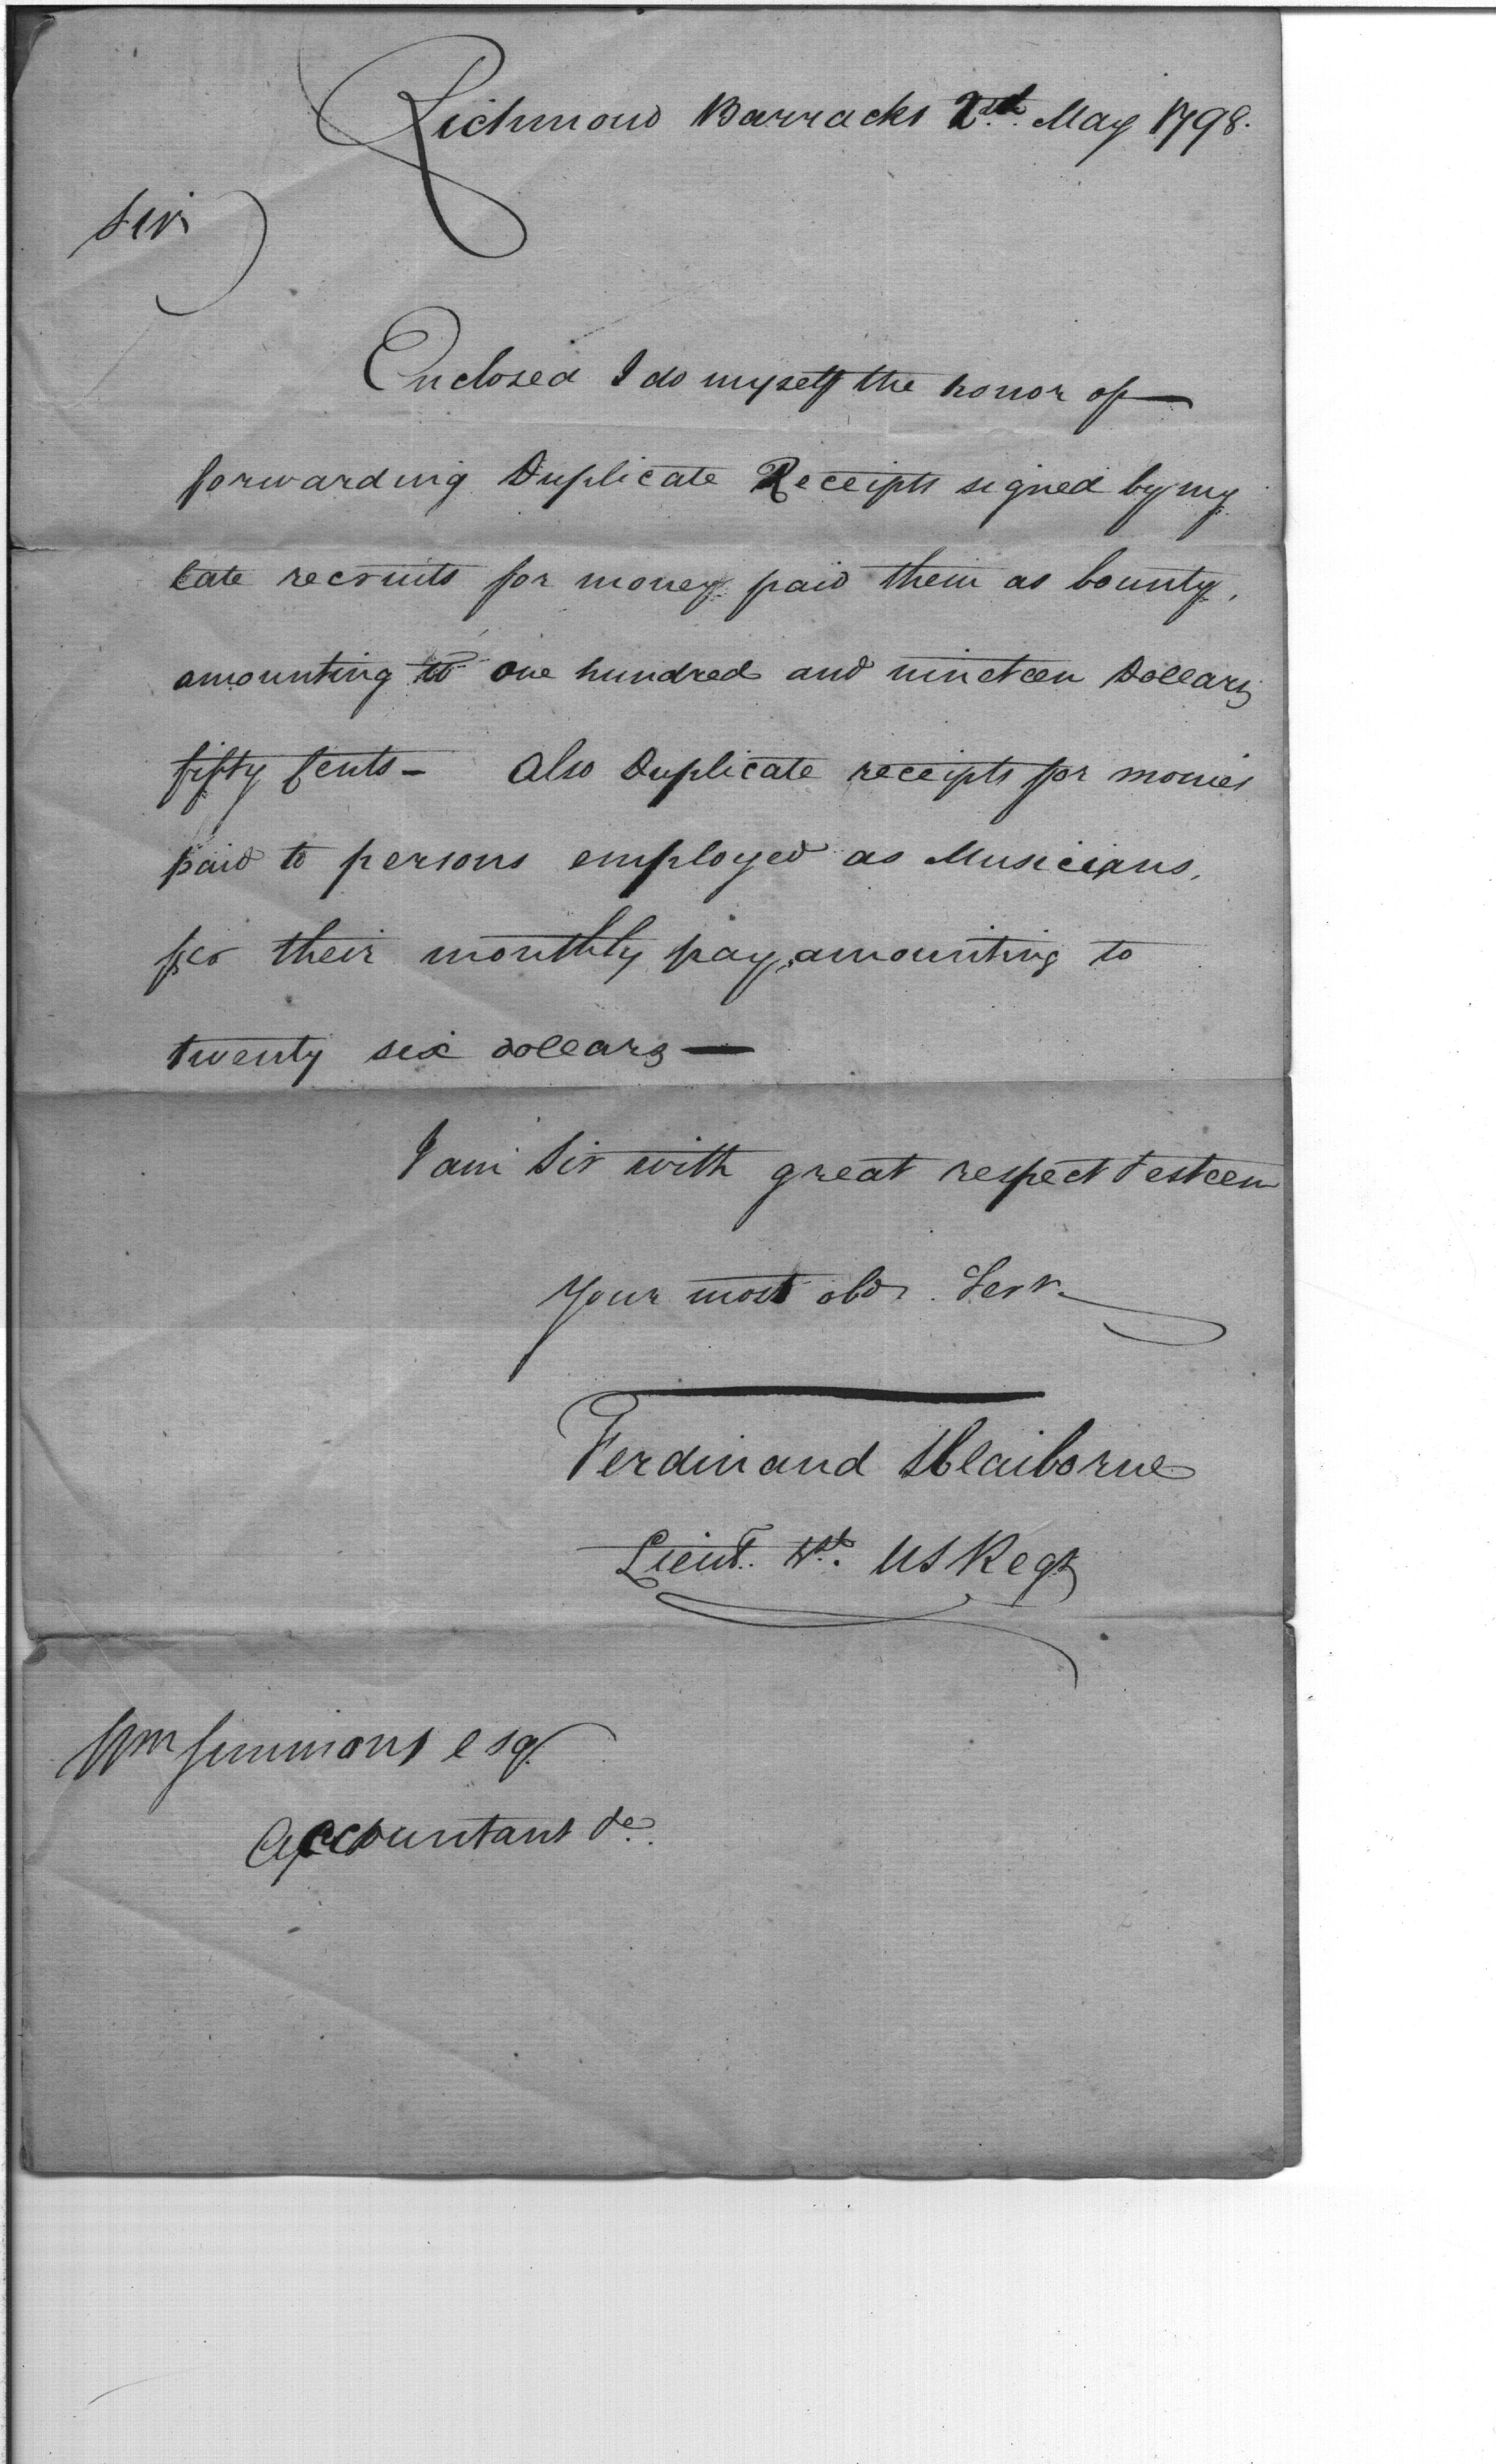 Richmond Barracks 2nd. May 1798.
Sir
Enclosed I do myself the honor of
forwarding Duplicate Receipts signed by my
late recruits for money paid them as bounty,
amounting to one hundred and nineteen Dollars
fifty Cents — Also Duplicate receipts for monies
paid to persons employed as Musicians,
for their monthly pay, amounting to
twenty six dollars —
I am Sir with great respect & esteem
Your most obdr. Servr.
Ferdinand L Claiborne
Lieut. US Regt
Wm Simmons esq.
Accountant &c.